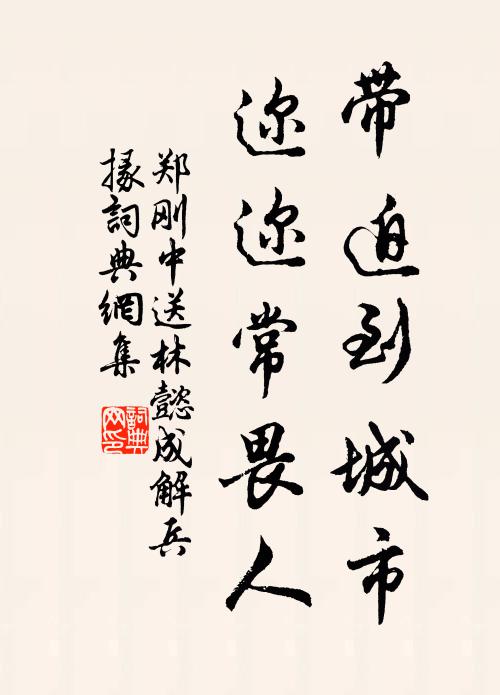 带迫到城市
迩迩常畏人
郑刚中送林懿成解兵
掾詞典網集
詞典网印